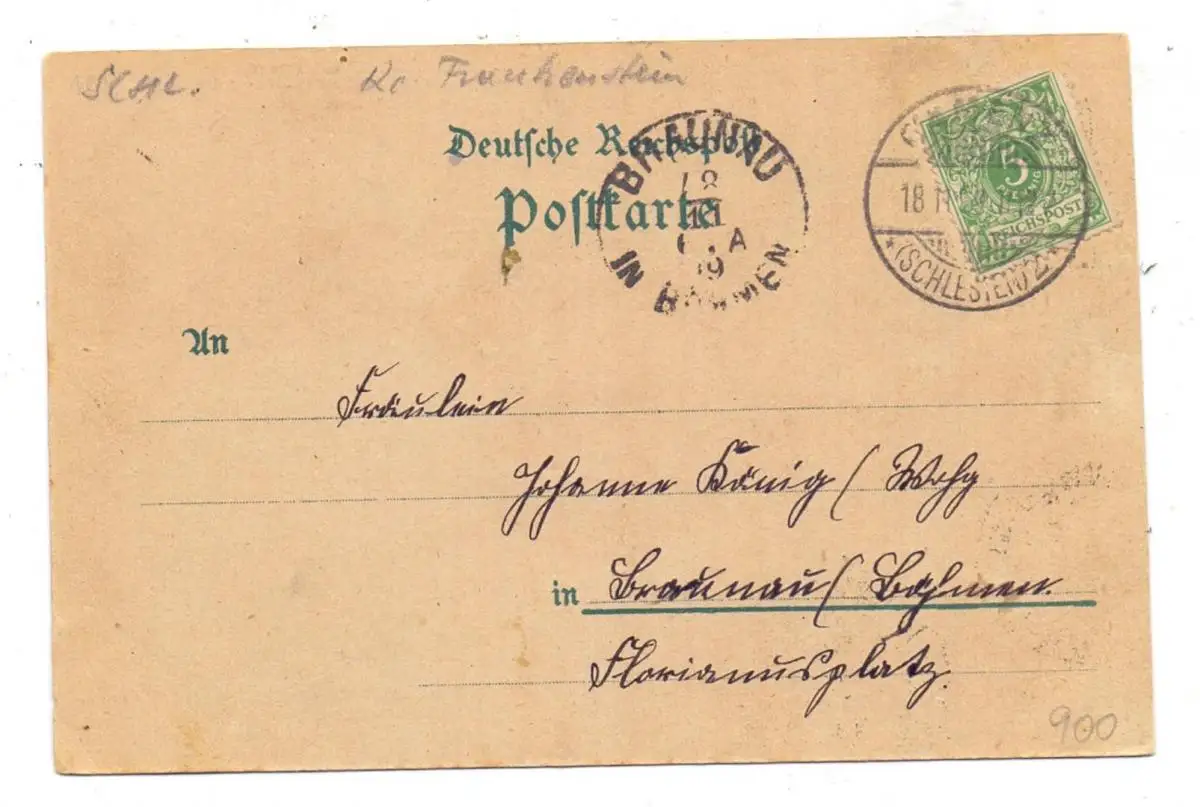 Schl. Kr. Frankenstein
Deutsche Reichspost
Postkarte
BRAUNAU
18
11
A
99
IN BÖHMEN
18 11
(SCHLESIEN) 2
5
PFENNIG
REICHSPOST
An
Fräulein
Johanne König / Wohg
in Braunau / Böhmen.
Florianusplatz
900